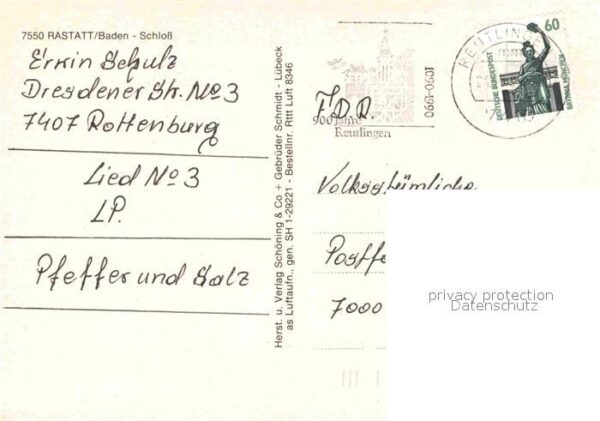 7550 RASTATT/Baden - Schloß
Erwin Schulz
Dresdener Str. No 3
7407 Rottenburg
Lied No 3
LP.
Pfeffer und Salz
Herst. u. Verlag Schöning & Co + Gebrüder Schmidt - Lübeck
as Luftaufn., gen. SH 1-29221 - Bestellnr. Rtt Luft 8346
900 Jahre
Reutlingen
1090-1990
REUTLING
60
DEUTSCHE BUNDESPOST
BAVARIA MÜNCHEN
Volksstümliche
Postf
7000
privacy protection
Datenschutz